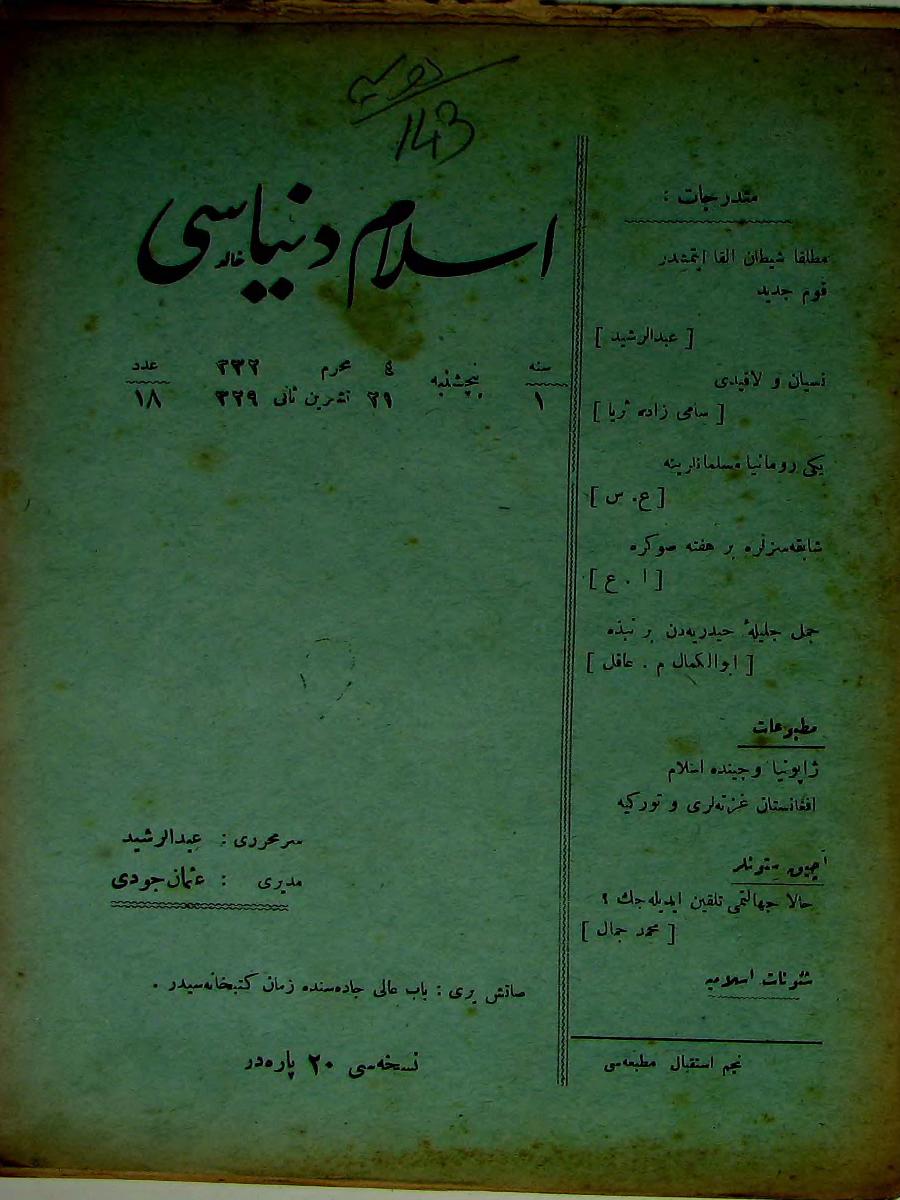 143
اسلام دنیاسی
سنه ١ پنجشنبه ٤ محرم ٣٣٢ عدد ١٨
٢١ تشرین ثانی ٣٢٩
سرمحرری : عبدالرشید
مدیری : عثمان جودی
صاتش یری : باب عالی جاده‌سنده زمان كتبخانه‌سیدر .
نسخه‌سی ٢٠ پاره‌در
مندرجات :
مطلقا شیطان القا ایتمشدر
قوم جدید
[ عبدالرشید ]
نسیان و لاقیدی
[ سامی زاده ثریا ]
یكی رومانیا مسلمانلرینه
[ ع. س ]
شابقه‌سزلره بر هفته صوكره
[ ا . ع ]
جمل جلیلهٔ حیدریه‌دن بر نبذه
[ ابوالكمال م . عاقل ]
مطبوعات
ژاپونیا و چینده اسلام
افغانستان غزته‌لری و توركیه
آچیق ستونلر
حالا جهالتمی تلقین ایدیله‌جك ؟
[ محمد جمال ]
شئونات اسلامیه
نجم استقبال مطبعه‌سی